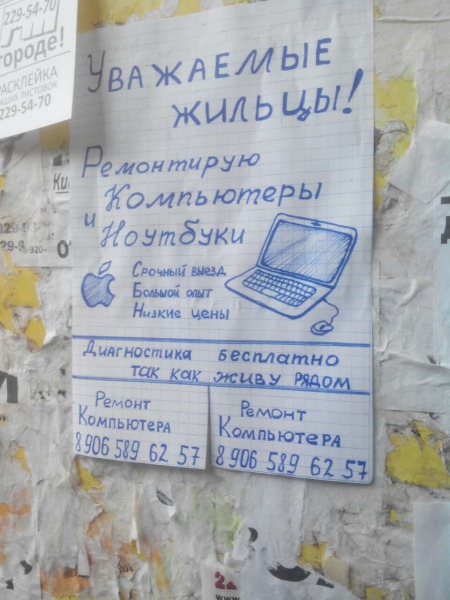 229-54-70
городе!
РАСКЛЕЙКА
ЛИСТОВОК
229-54-70
Уважаемые
жильцы!
Ремонтирую
Компьютеры
и Ноутбуки
Срочный выезд
Большой опыт
Низкие цены
Диагностика бесплатно
так как живу рядом
Ремонт
Компьютера
8 906 589 62 57
Ремонт
Компьютера
8 906 589 62 57